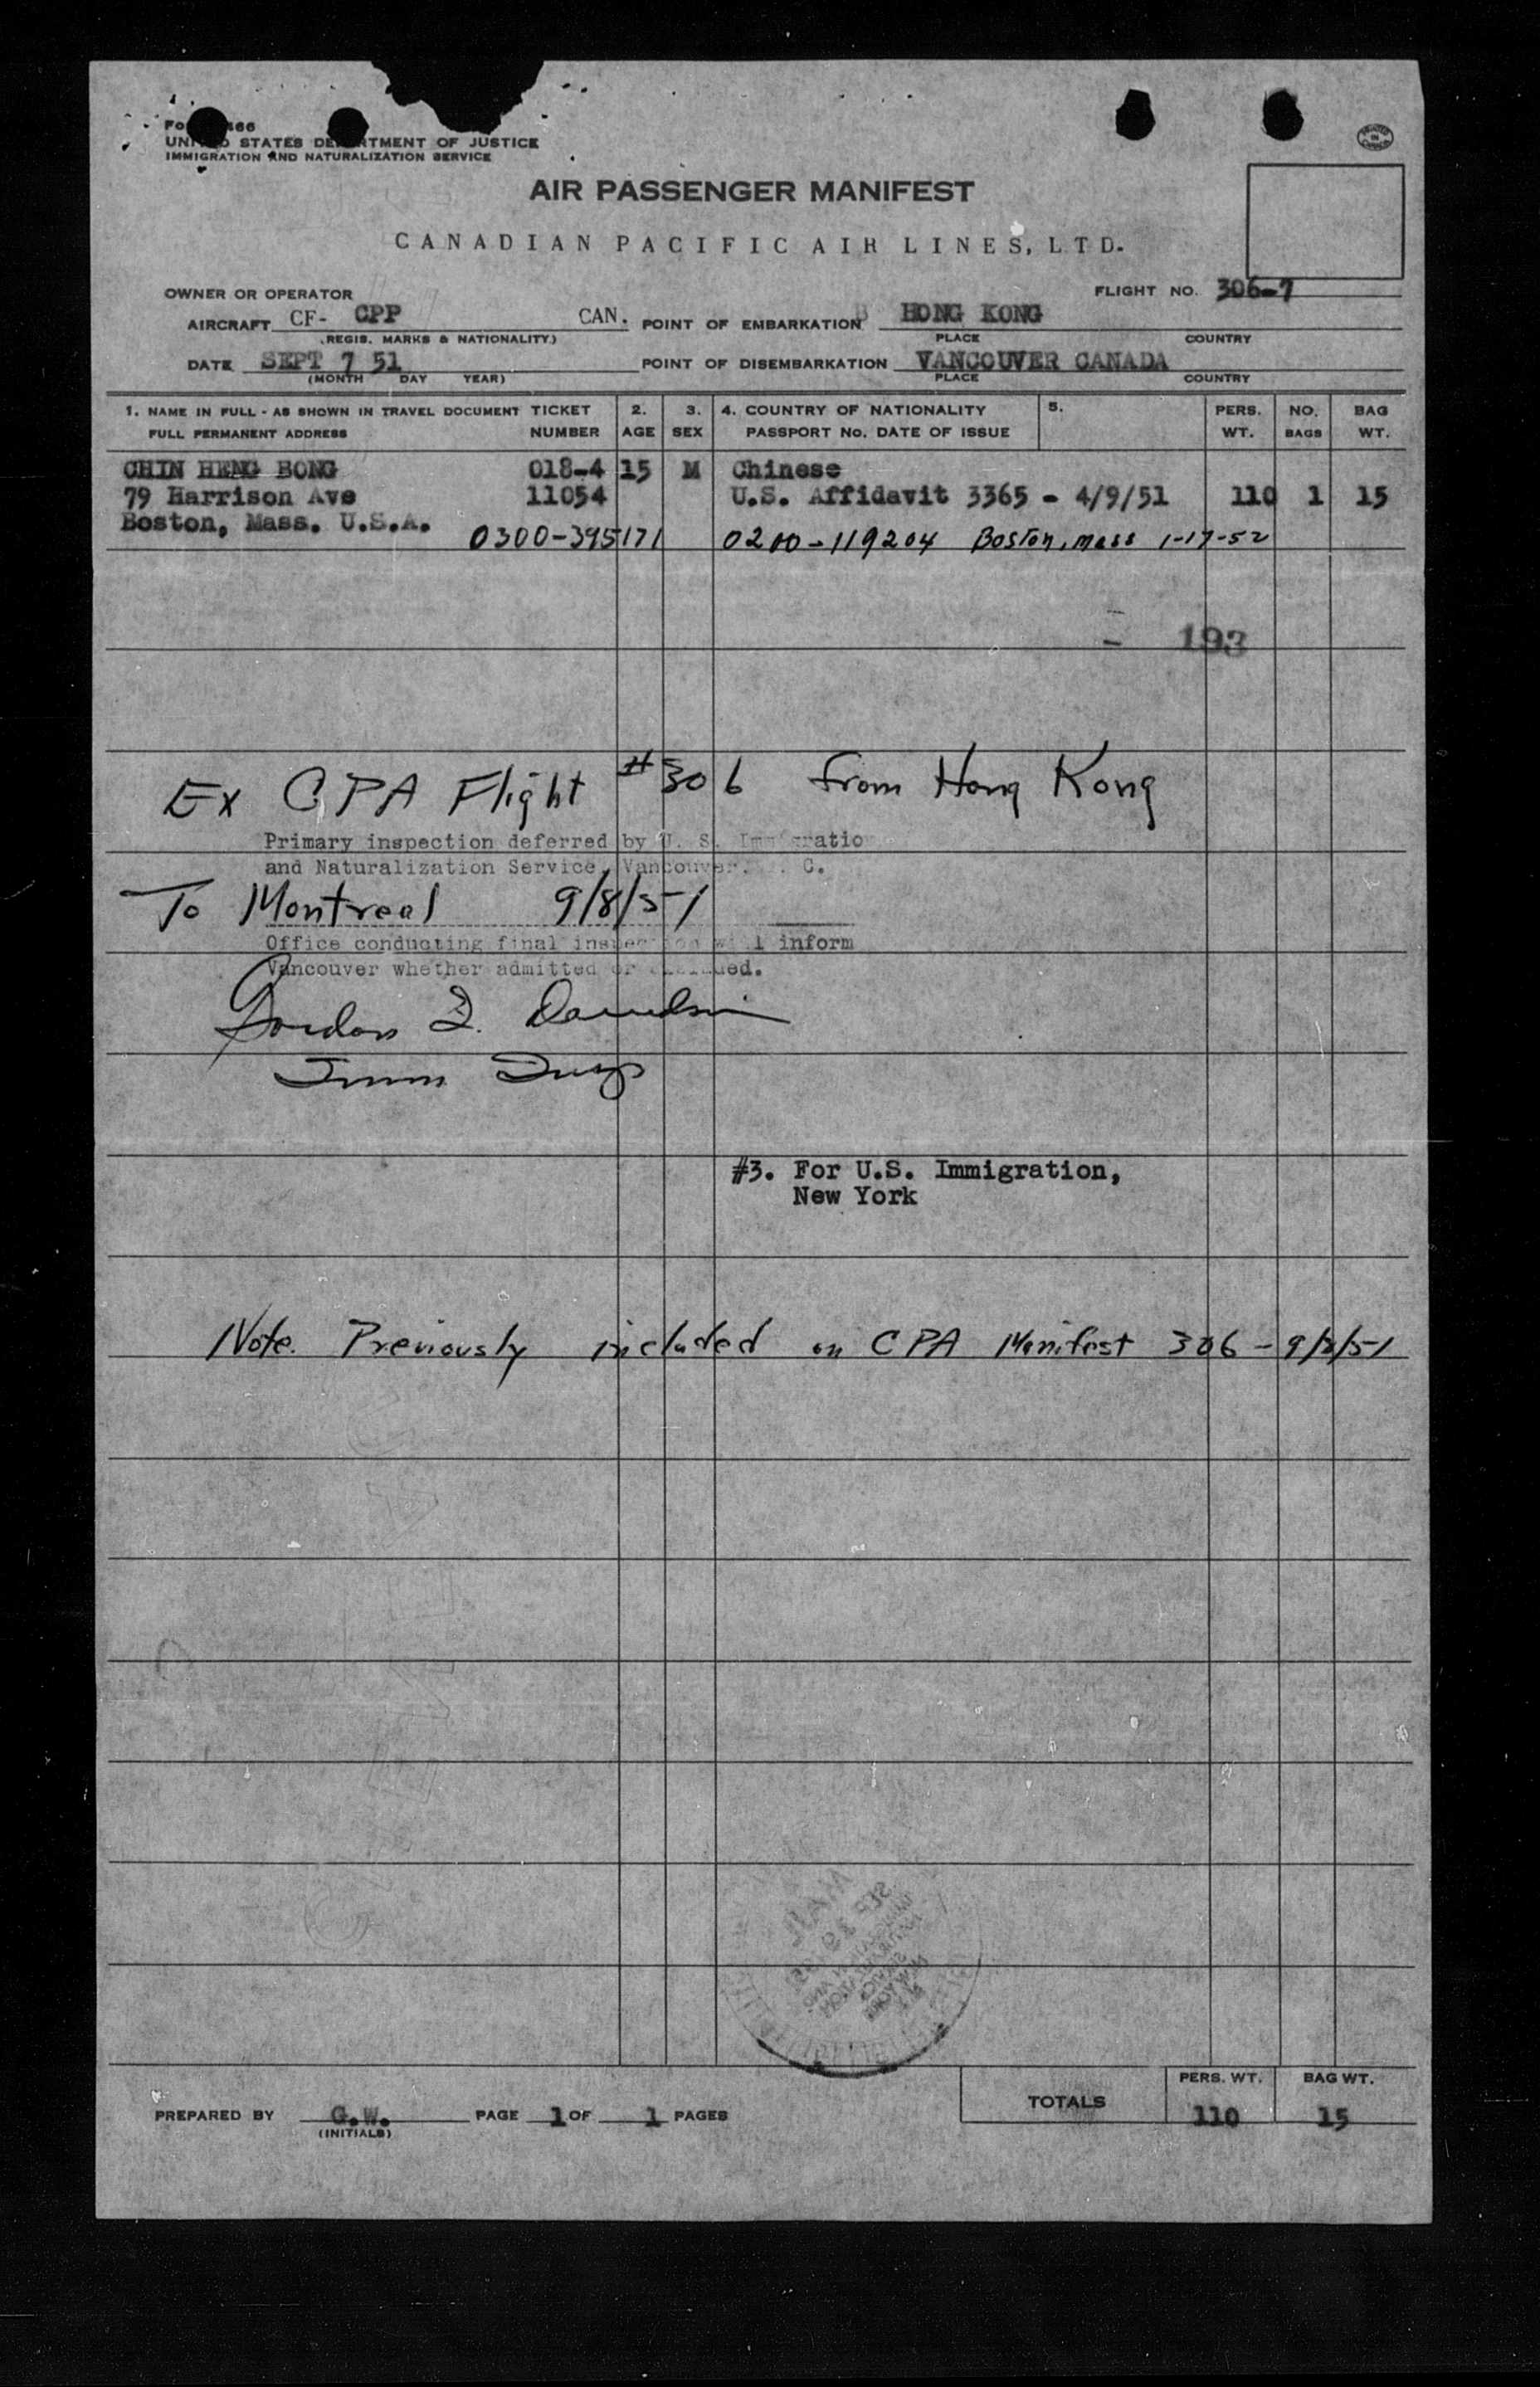 UNITED STATES DEPARTMENT OF JUSTICE
IMMIGRATION AND NATURALIZATION SERVICE
PRINTED IN CANADA
AIR PASSENGER MANIFEST
CANADIAN PACIFIC AIR LINES, LTD.
OWNER OR OPERATOR
FLIGHT NO. 306-7
AIRCRAFT CF- CPP CAN. POINT OF EMBARKATION HONG KONG
(REGIS. MARKS & NATIONALITY) PLACE COUNTRY
DATE SEPT 7 51 POINT OF DISEMBARKATION VANCOUVER CANADA
(MONTH DAY YEAR) PLACE COUNTRY
1. NAME IN FULL - AS SHOWN IN TRAVEL DOCUMENT TICKET 2. 3. 4. COUNTRY OF NATIONALITY 5. PERS. NO. BAG
FULL PERMANENT ADDRESS NUMBER AGE SEX PASSPORT No. DATE OF ISSUE WT. BAGS WT.
CHIN HENG BONG 018-4 15 M Chinese
79 Harrison Ave 11054 U.S. Affidavit 3365 - 4/9/51 110 1 15
Boston, Mass. U.S.A.
0300-395171 0200-119204 Boston, Mass 1-17-52
- 193
Ex CPA Flight #306 from Hong Kong
Primary inspection deferred by U. S. Immigratio
and Naturalization Service, Vancouver. C.
To Montreal 9/8/51
Office conducting final inspection will inform
Vancouver whether admitted or excluded.
Gordon Davidson
Imm Insp
#3. For U.S. Immigration,
New York
Note. Previously included on CPA Manifest 306 - 9/8/51
SEP 19
TOTALS PERS. WT. BAG WT.
110 15
PREPARED BY G.W. PAGE 1 OF 1 PAGES
(INITIALS)